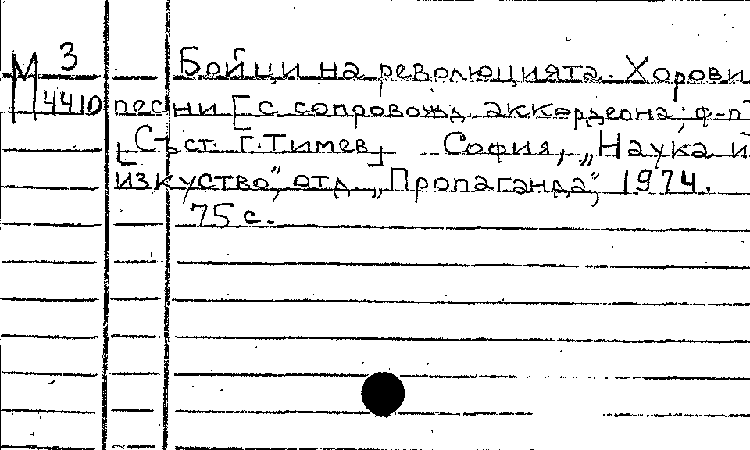 М 3 Бойци на революцията. Хорови
4410 песни [с сопровожд. аккордеона; ф-п
[Съст. Г. Тимев] София, „Наука и
изкуство", отд. „Пропаганда", 1974.
75 с.